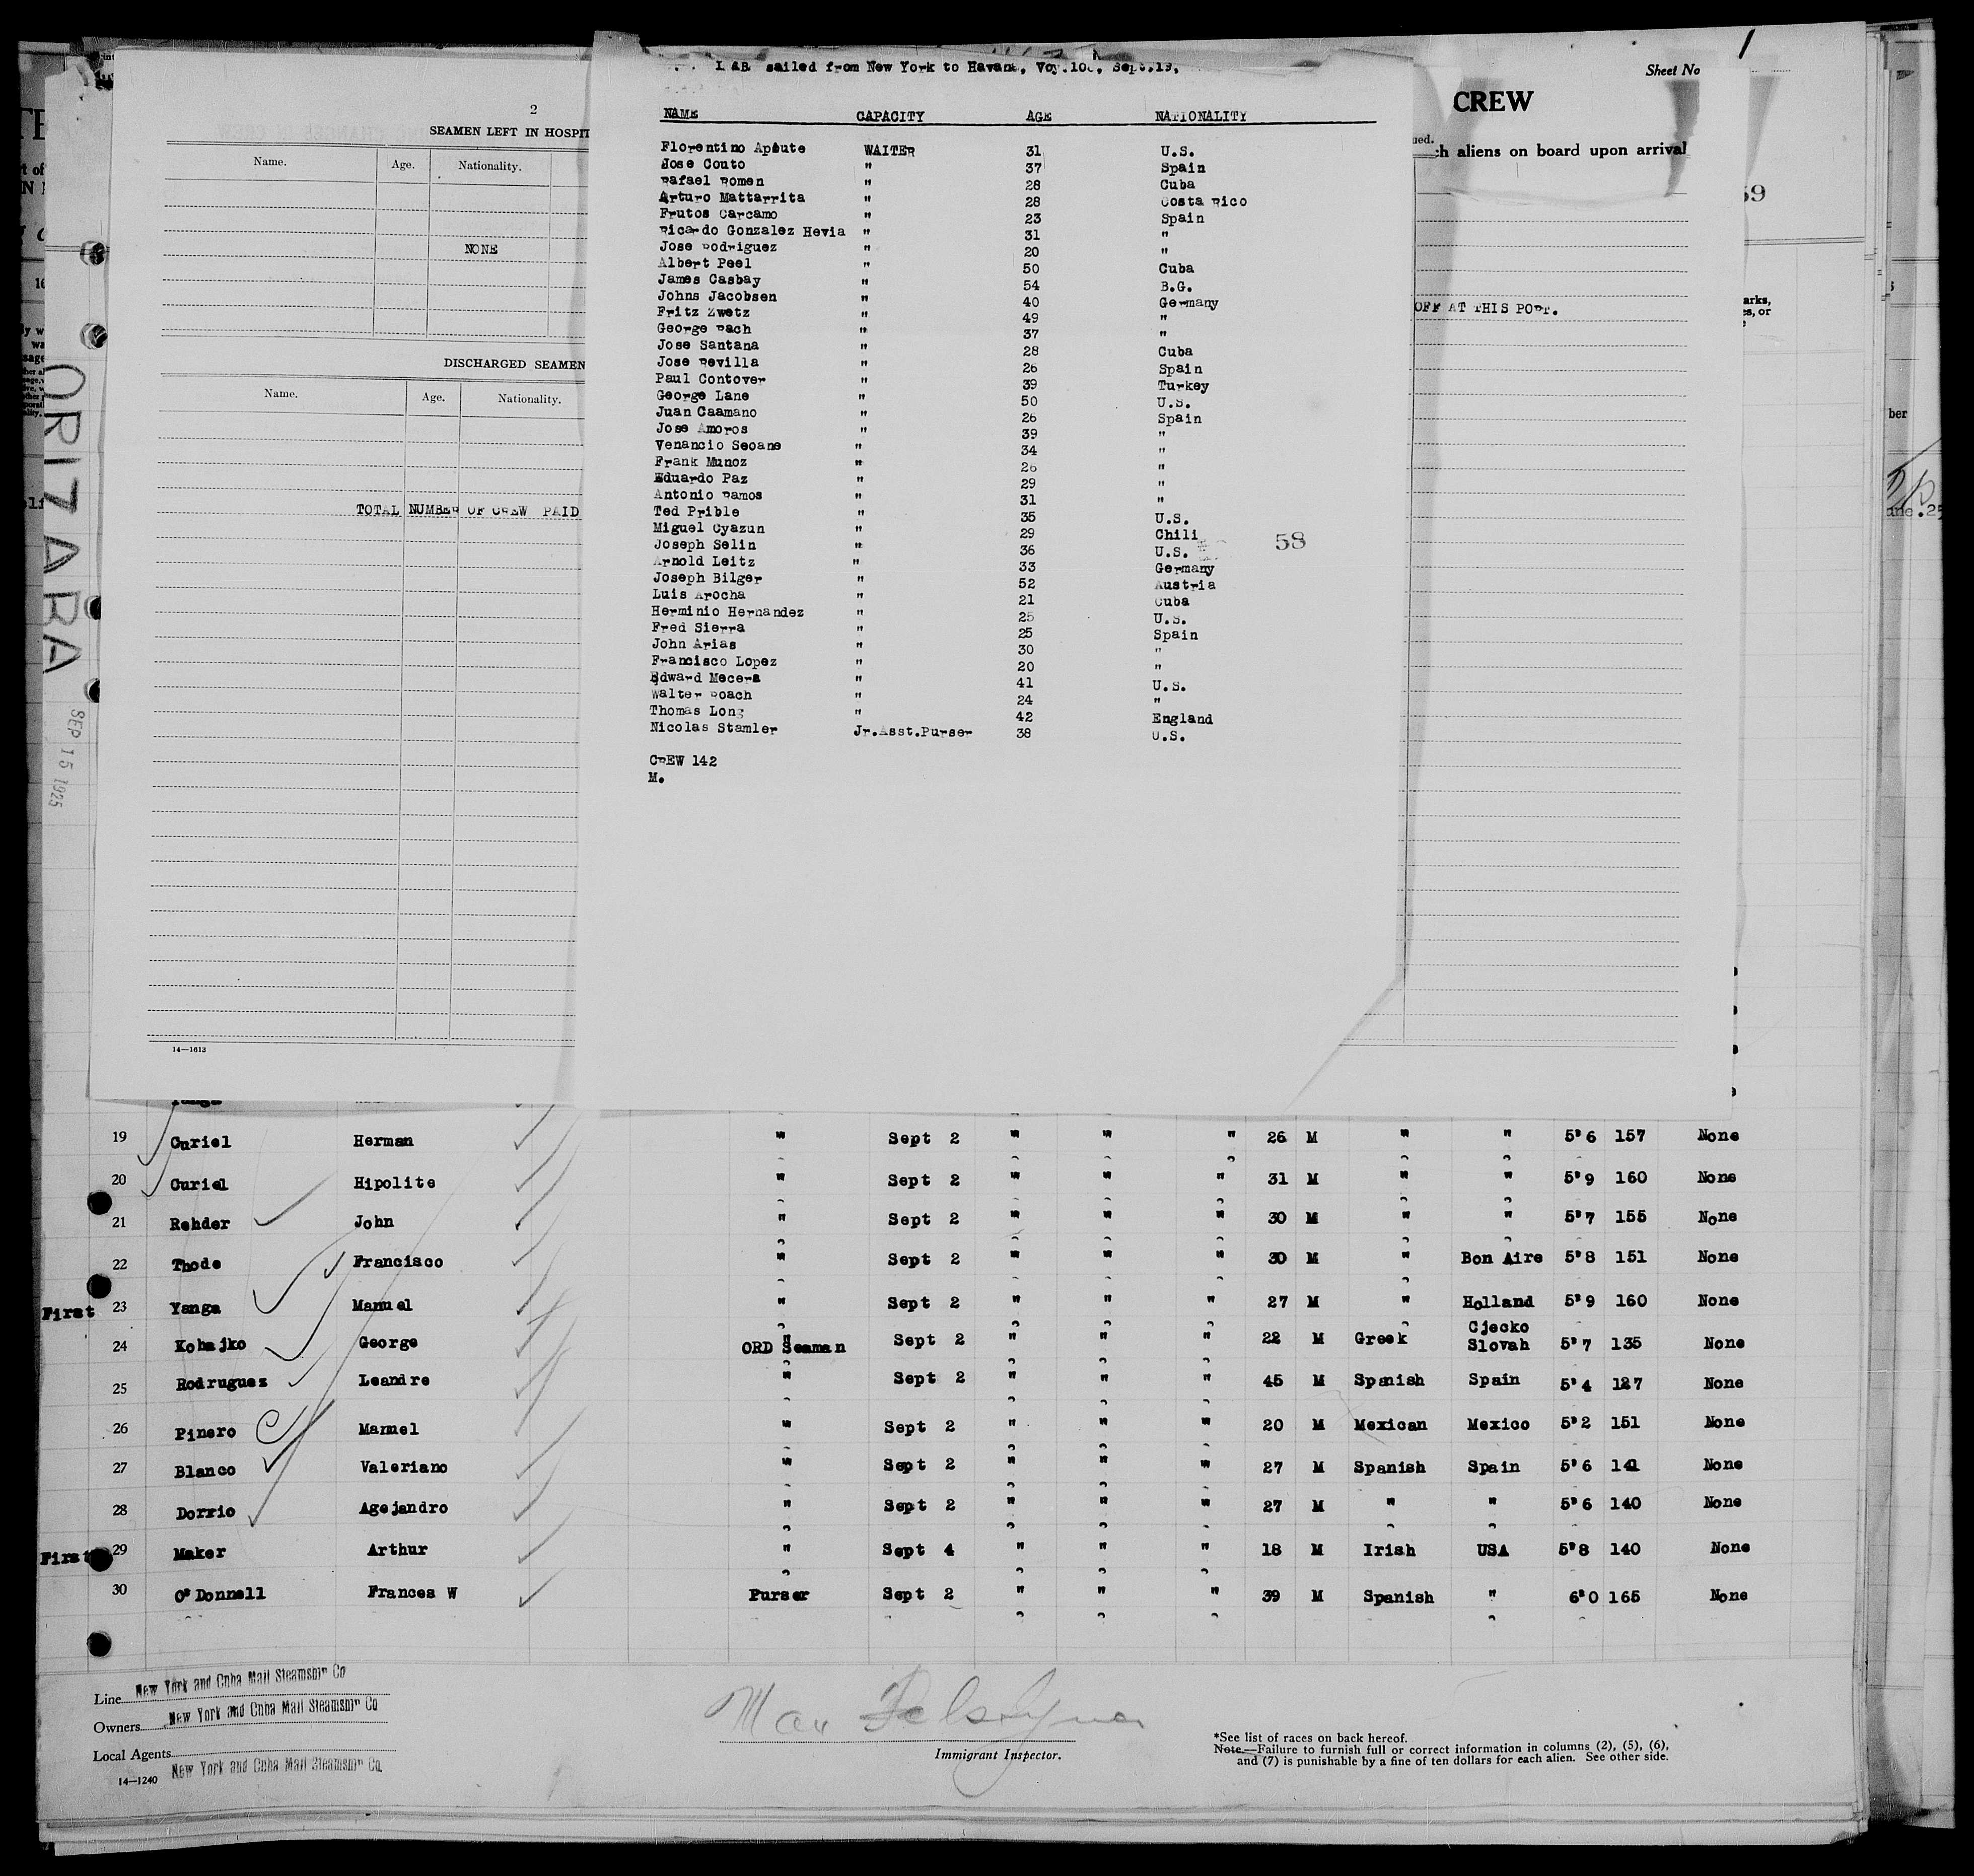 Sheet No
2
SEAMEN LEFT IN HOSPIT
Name. Age. Nationality.
NONE
DISCHARGED SEAMEN
Name. Age. Nationality.
TOTAL NUMBER OF CREW PAID
14—1613
ORIZABA
SEP 15 1925
sailed from New York to Havana, Voy. Sept.19,
NAME CAPACITY AGE NATIONALITY
Florentino Apbute WAITER 31 U.S.
Jose Couto " 37 Spain
Rafael Romen " 28 Cuba
Arturo Mattarrita " 28 Costa Rico
Frutos Carcamo " 23 Spain
Ricardo Gonzalez Hevia " 31 "
Jose Rodriguez " 20 "
Albert Peel " 50 Cuba
James Casbay " 54 B.G.
Johns Jacobsen " 40 Germany
Fritz Zwetz " 49 "
George Bach " 37 "
Jose Santana " 28 Cuba
Jose Revilla " 26 Spain
Paul Contover " 39 Turkey
George Lane " 50 U.S.
Juan Caamano " 26 Spain
Jose Amoros " 39 "
Venancio Seoane " 34 "
Frank Munoz " 26 "
Eduardo Paz " 29 "
Antonio Ramos " 31 "
Ted Prible " 35 U.S.
Miguel Cyazun " 29 Chili
Joseph Selin " 36 U.S.
58
Arnold Leitz " 33 Germany
Joseph Bilger " 52 Austria
Luis Arocha " 21 Cuba
Herminio Hernandez " 25 U.S.
Fred Sierra " 25 Spain
John Arias " 30 "
Francisco Lopez " 20 "
Edward Mecera " 41 U.S.
Walter Roach " 24 "
Thomas Long " 42 England
Nicolas Stamler Jr.Asst.Purser 38 U.S.
CREW 142
M.
CREW
ch aliens on board upon arrival
OFF AT THIS PORT.
59
arks,
es, or
ber
19 Curiel Herman " Sept 2 " " " 26 M " " 5'6 157 None
20 Curiel Hipolite " Sept 2 " " " 31 M " " 5'9 160 None
21 Rehder John " Sept 2 " " " 30 M " " 5'7 155 None
22 Thode Francisco " Sept 2 " " " 30 M " Bon Aire 5'8 151 None
First 23 Yanga Manuel " Sept 2 " " " 27 M " Holland 5'9 160 None
24 Kobajko George ORD Seaman Sept 2 " " " 22 M Greek Cjecko Slovah 5'7 135 None
25 Rodruguez Leandre " Sept 2 " " " 45 M Spanish Spain 5'4 127 None
26 Pinero Manuel " Sept 2 " " " 20 M Mexican Mexico 5'2 151 None
27 Blanco Valeriano " Sept 2 " " " 27 M Spanish Spain 5'6 141 None
28 Dorrio Agejandro " Sept 2 " " " 27 M " " 5'6 140 None
First 29 Maker Arthur " Sept 4 " " " 18 M Irish USA 5'8 140 None
30 O'Donnell Frances W Purser Sept 2 " " " 39 M Spanish " 6'0 165 None
Line New York and Cuba Mail Steamship Co
Owners New York and Cuba Mail Steamship Co
Local Agents New York and Cuba Mail Steamship Co.
14—1240
Immigrant Inspector.
*See list of races on back hereof.
Note.—Failure to furnish full or correct information in columns (2), (5), (6),
and (7) is punishable by a fine of ten dollars for each alien. See other side.